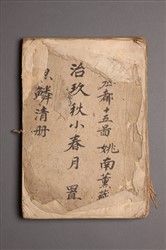 都十五啚 姚南薰
治玖秋小春月 置
鱗清册